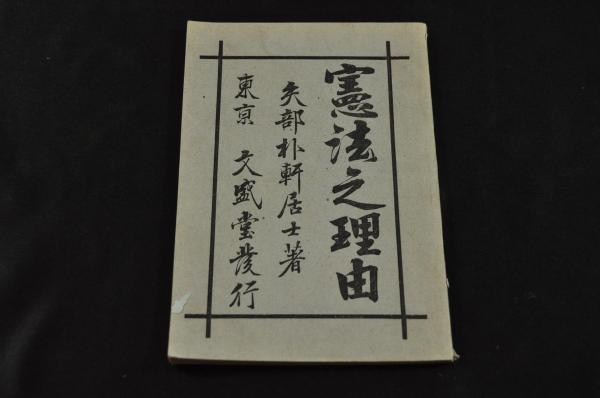 憲法之理由
矢部朴軒居士著
東京 文盛堂發行